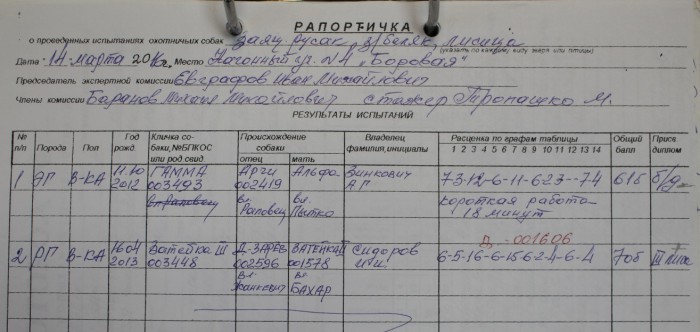 РАПОРТИЧКА
о проведенных испытаниях охотничьих собак заяц русак, з/беляк, лисица
(указать по каждому виду зверя или птицы)
Дата 14 марта 2016г. Место Нагонный уч. №4 "Боровая"
Председатель экспертной комиссии Евграфов Иван Михайлович
Члены комиссии Баранов Михаил Михайлович стажер М.
РЕЗУЛЬТАТЫ ИСПЫТАНИЙ
№ п/п Порода Пол Год рожд. Кличка собаки, №ВПКОС или род свид. Происхождение собаки отец мать Владелец фамилия, инициалы Расценка по графам таблицы 1 2 3 4 5 6 7 8 9 10 11 12 13 14 Общий балл Присв. диплом
1 ЭГ В-КА 11.10 2012 ГАММА 003493 Арчи 002419 Альфа Зинкович А.Г. 7-3-12-6-11-6-2-3--7-4 61б б/д
вл. вл. короткая работа
18 минут
Д. -001606
2 РГ В-КА 16.04 2013 Ватейка III 003448 002596 ВАТЕЙКА II 001578 Сидоров И.И. 6-5-16-6-15-6-2-4-6-4 70б III
вл. вл.
БАХАР